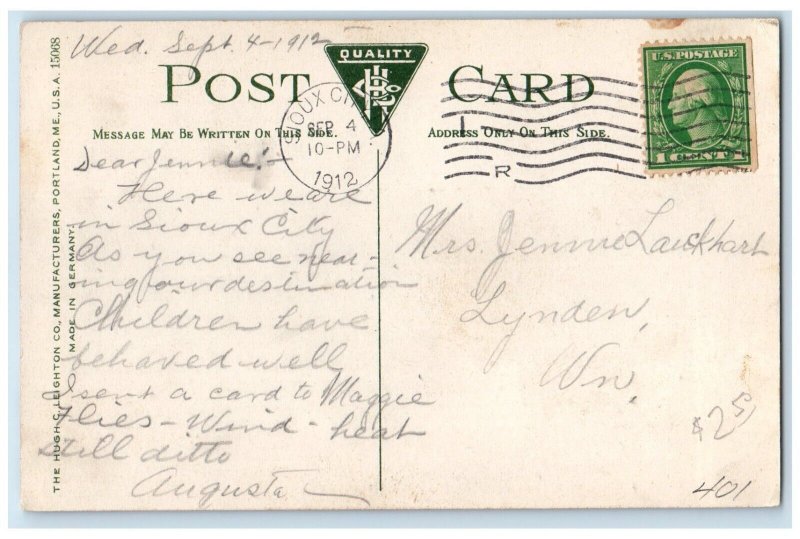 Wed. Sept. 4-1912
QUALITY
POST CARD
MESSAGE MAY BE WRITTEN ON THIS SIDE.
ADDRESS ONLY ON THIS SIDE.
SIOUX CITY
SEP 4
10-PM
1912
R
U.S. POSTAGE
1 CENT 1
Dear Jennie:-
Here we are
in Sioux City
As you see near-
ing our destination
Children have
behaved well
I sent a card to Maggie
Flies - Wind - heat
Still ditto
Augusta
Mrs. Jennie Lauckhart
Lynden,
Wn.
$25
401
THE HUGH C. LEIGHTON CO., MANUFACTURERS, PORTLAND, ME., U.S.A. 15068
MADE IN GERMANY